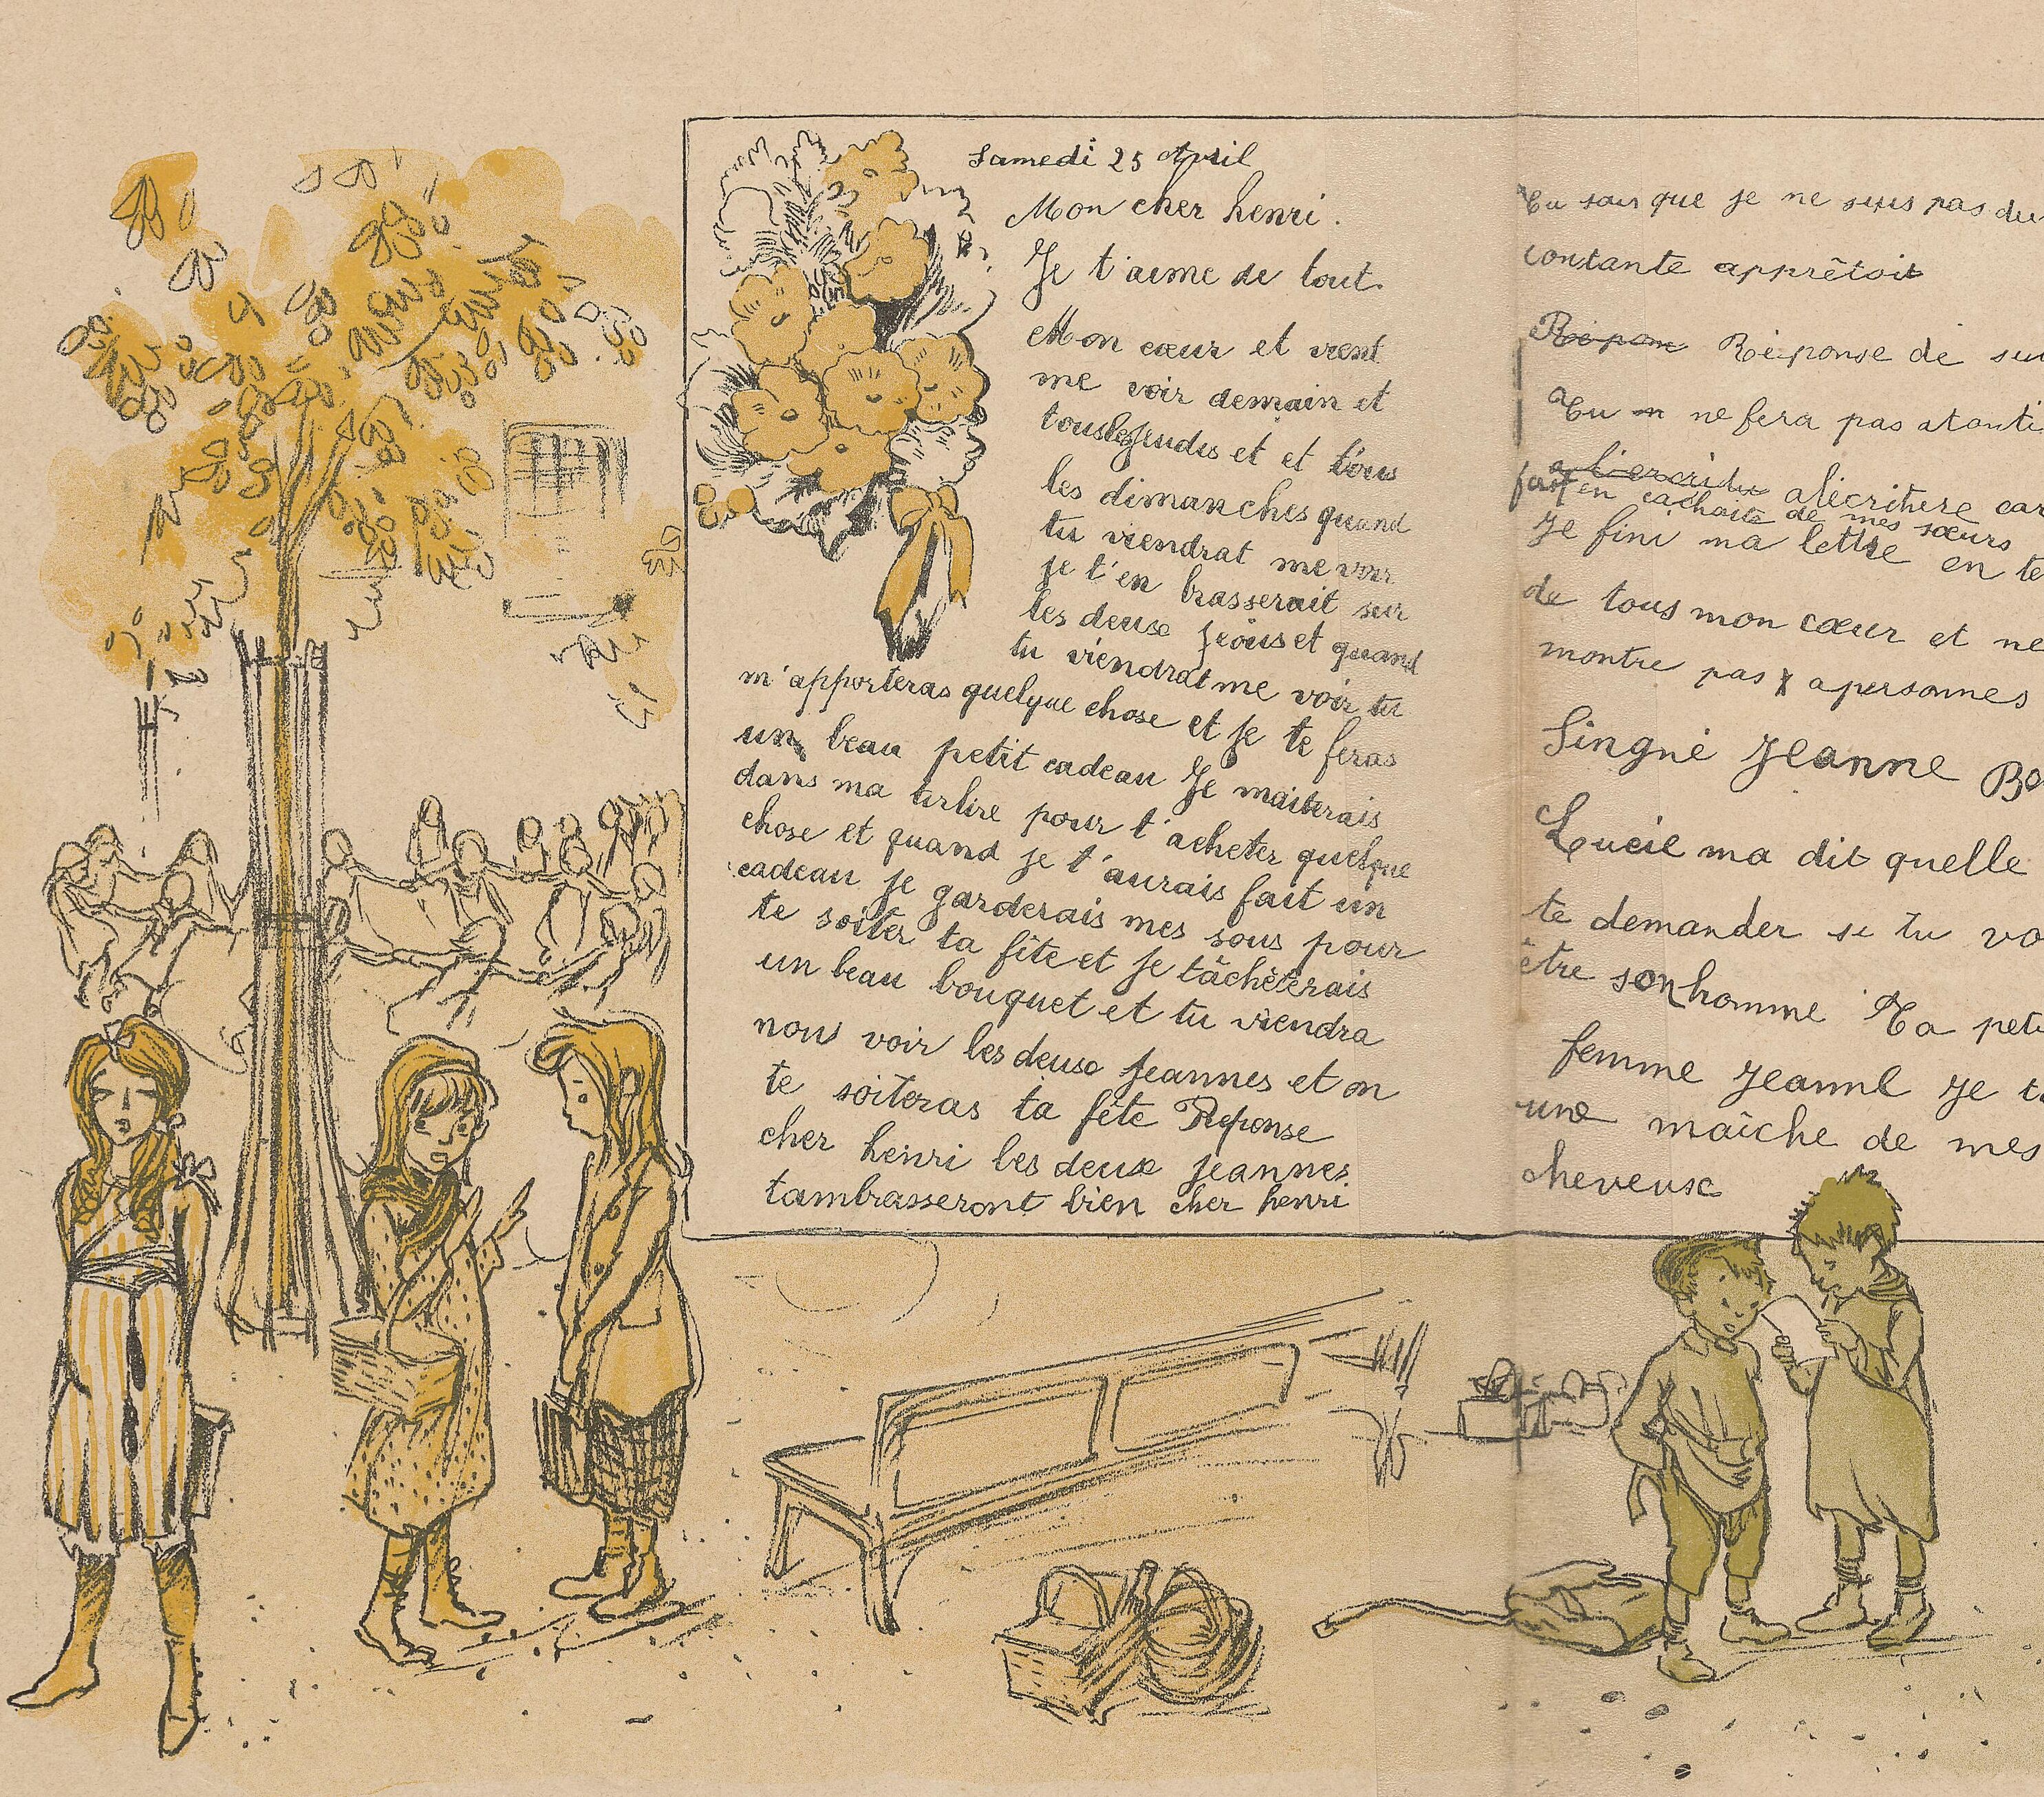 Samedi 25 Avril
Mon cher henri.
Je t'aime de tout.
Mon cœur et vient
me voir demain et
touslesjeudis et et tous
les dimanches quand
tu viendrat me voir
je t'en brasserait sur
les deuse jouset quand
tu viendrat me voir tu
m'apporteras quelque chose et je te feras
un beau petit cadeau Je maiterais
dans ma tirlire pour t'acheter quelque
chose et quand je t'aurais fait un
cadeau je garderais mes sous pour
te soiter ta fête et je tâchèterais
un beau bouquet et tu viendra
nous voir les deuse Jeannes et on
te soiteras ta fête Reponse
cher henri les deux Jeannes
tambrasseront bien cher henri
Tu sais que je ne suis pas du
constante apprêtoit
Repon Réponse de
Tu ne fera pas atanti
alécriture car
fait en cachaite de mes sœurs
Je fini ma lettre en te
de tous mon cœur et ne
montre pas apersonnes
Singné Jeanne
Lucie ma dit quelle
te demander si tu vo
être son homme Ta peti
femme Jeanne Je
une maîche de mes
cheveuse